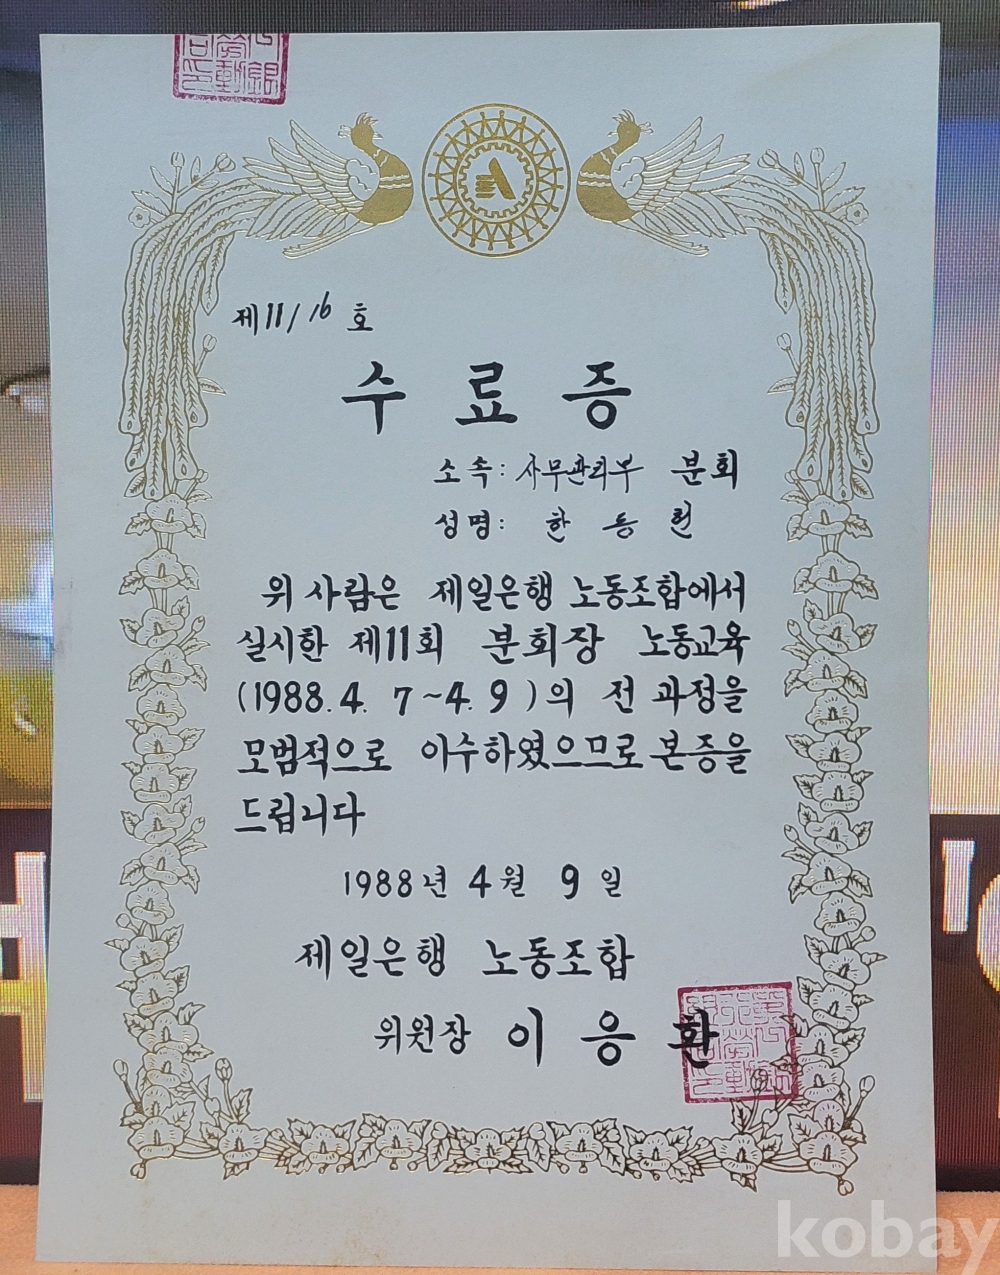 제11/16 호
수 료 증
소속: 사무관리부 분회
성명: 한 동 헌
위 사람은 제일은행 노동조합에서
실시한 제11회 분회장 노동교육
(1988. 4. 7 ~ 4. 9)의 전 과정을
모범적으로 이수하였으므로 본증을
드립니다
1988년 4월 9일
제일은행 노동조합
위원장 이 응 환
kobay